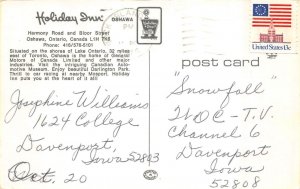 Holiday Inn®
OSHAWA
Harmony Road and Bloor Street
Oshawa, Ontario, Canada L1H 7K5
Phone: 416/576-5101
Situated on the shores of Lake Ontario, 32 miles
east of Toronto. Oshawa is the home of General
Motors of Canada Limited and other major
industries. Visit the intriguing Canadian Auto-
motive Museum. Enjoy beautiful Darlington Park.
Thrill to car racing at nearby Mosport. Holiday
Inn makes your stay here at its most pleasant!
PM
United States 13c
post card
Josephine Williams
1624 College
Davenport,
Iowa 52803
Oct. 20
"Snowfall"
WOC-T.V.
Channel 6
Davenport
Iowa
52808